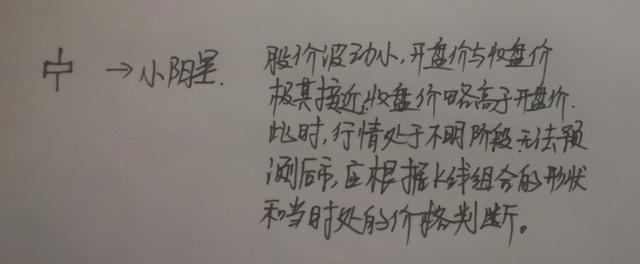 →小阳星.
股价波动小,开盘价与收盘价
极其接近,收盘价略高于开盘价.
此时,行情处于不明阶段,无法预
测后市,应根据K线组合的形状
和当时处的价格判断。